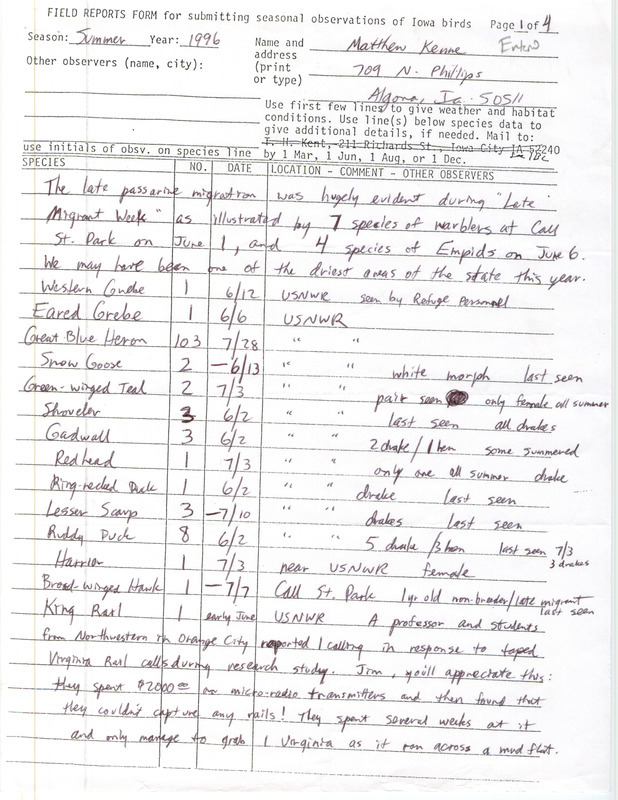 FIELD REPORTS FORM for submitting seasonal observations of Iowa birds Page 1 of 4
Season: Summer Year: 1996 Name and Matthew Kenne Entered
Other observers (name, city): address 709 N. Phillips
(print
or type) Algona, Ia. 50511
Use first few lines to give weather and habitat
conditions. Use line(s) below species data to
give additional details, if needed. Mail to:
T. H. Kent, 211 Richards St., Iowa City IA 52240
use initials of obsv. on species line by 1 Mar, 1 Jun, 1 Aug, or 1 Dec.
SPECIES NO. DATE LOCATION - COMMENT - OTHER OBSERVERS
The late passarine migration was hugely evident during "Late
Migrant Week" as illustrated by 7 species of warblers at Call
St. Park on June 1, and 4 species of Empids on June 6.
We may have been one of the driest areas of the state this year.
Western Grebe 1 6/12 USNWR seen by Refuge Personnel
Eared Grebe 1 6/6 USNWR
Great Blue Heron 103 7/28 " "
Snow Goose 2 -6/13 " " white morph last seen
Green-winged Teal 2 7/3 " " pair seen only female all summer
Shoveler 3 6/2 " " last seen all drakes
Gadwall 3 6/2 " " 2 drake/1 hen some summered
Redhead 1 7/3 " " only one all summer drake
Ring-necked Duck 1 6/2 " " drake last seen
Lesser Scaup 3 -7/10 " " drakes last seen
Ruddy Duck 8 6/2 " " 5 drake/3 hen last seen 7/3
3 drakes
Harrier 1 7/3 near USNWR female
Broad-winged Hawk 1 -7/7 Call St. Park 1 yr old non-breeder/late migrant
last seen
King Rail 1 early June USNWR A professor and students
from Northwestern in Orange City reported 1 calling in response to taped
Virginia Rail calls during research study. Jim, you'll appreciate this:
they spent $2000.00 on micro-radio transmitters and then found that
they couldn't capture any rails! They spent several weeks at it
and only manage to grab 1 Virginia as it ran across a mud flat.